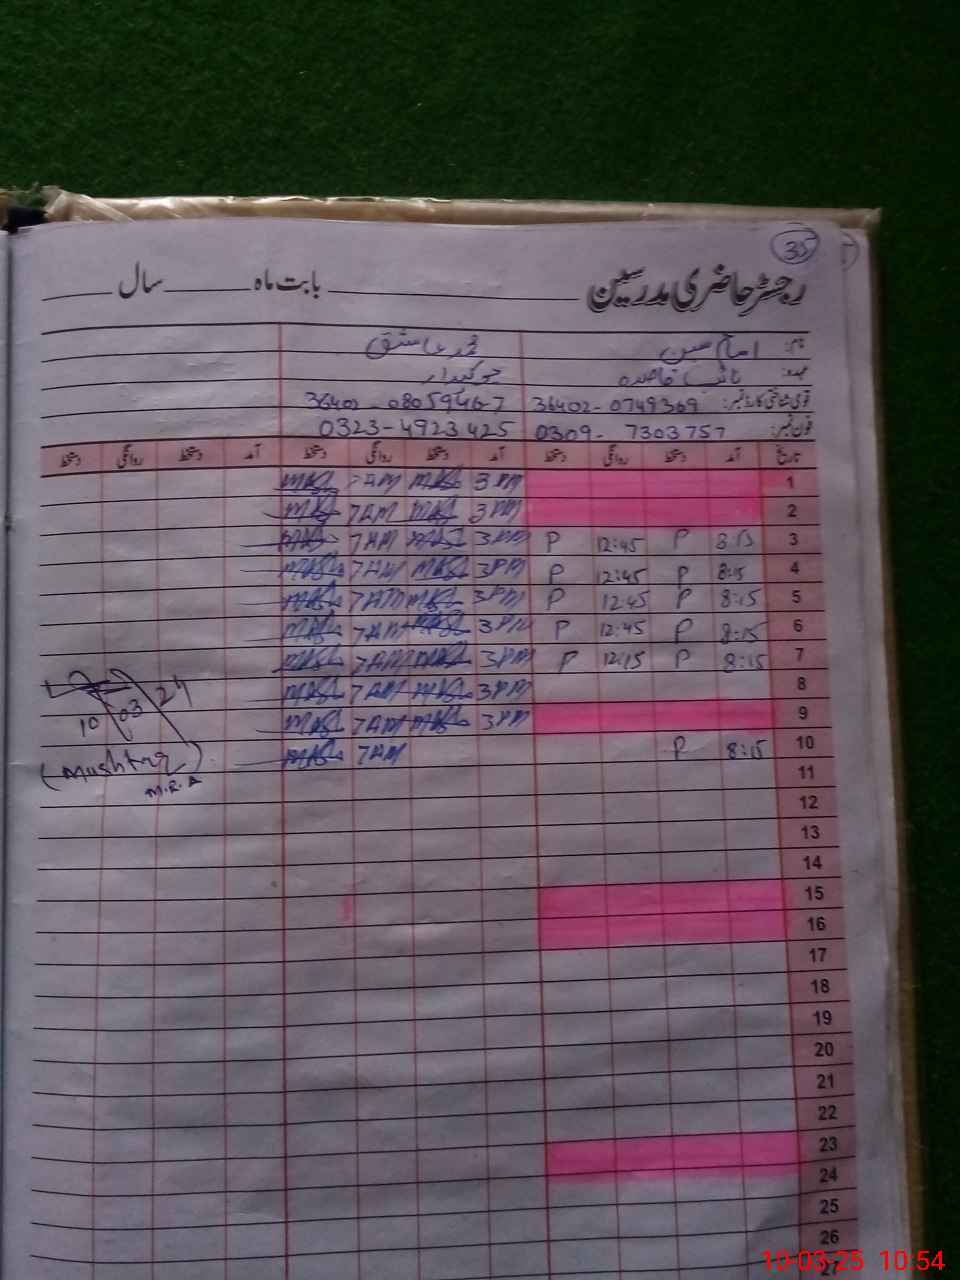 35
رجسٹر حاضری مدرسین بابت ماہ سال
نام: امام حسین محمد عاشق
عہدہ: نائب قاصد چوکیدار
قومی شناختی کارڈ نمبر: 36402-0749369 36402-0805946-7
فون نمبر: 0309-7303757 0323-4923425
تاریخ آمد دستخط روانگی دستخط آمد دستخط روانگی دستخط آمد دستخط روانگی دستخط
1 3 PM 7AM
2 3 PM 7AM
3 8:15 P 12:45 P 3PM 7AM
4 8:15 P 12:45 P 3PM 7AM
5 8:15 P 12:45 P 3PM 7AM
6 8:15 P 12:45 P 3PM 7AM
7 8:15 P 12:15 P 3PM 7AM
8 3PM 7AM
9 3PM 7AM
10 8:15 P 7AM
10 03 24
(Mushtaq)
M.R.A
11
12
13
14
15
16
17
18
19
20
21
22
23
24
25
26
27
10-03-25 10:54